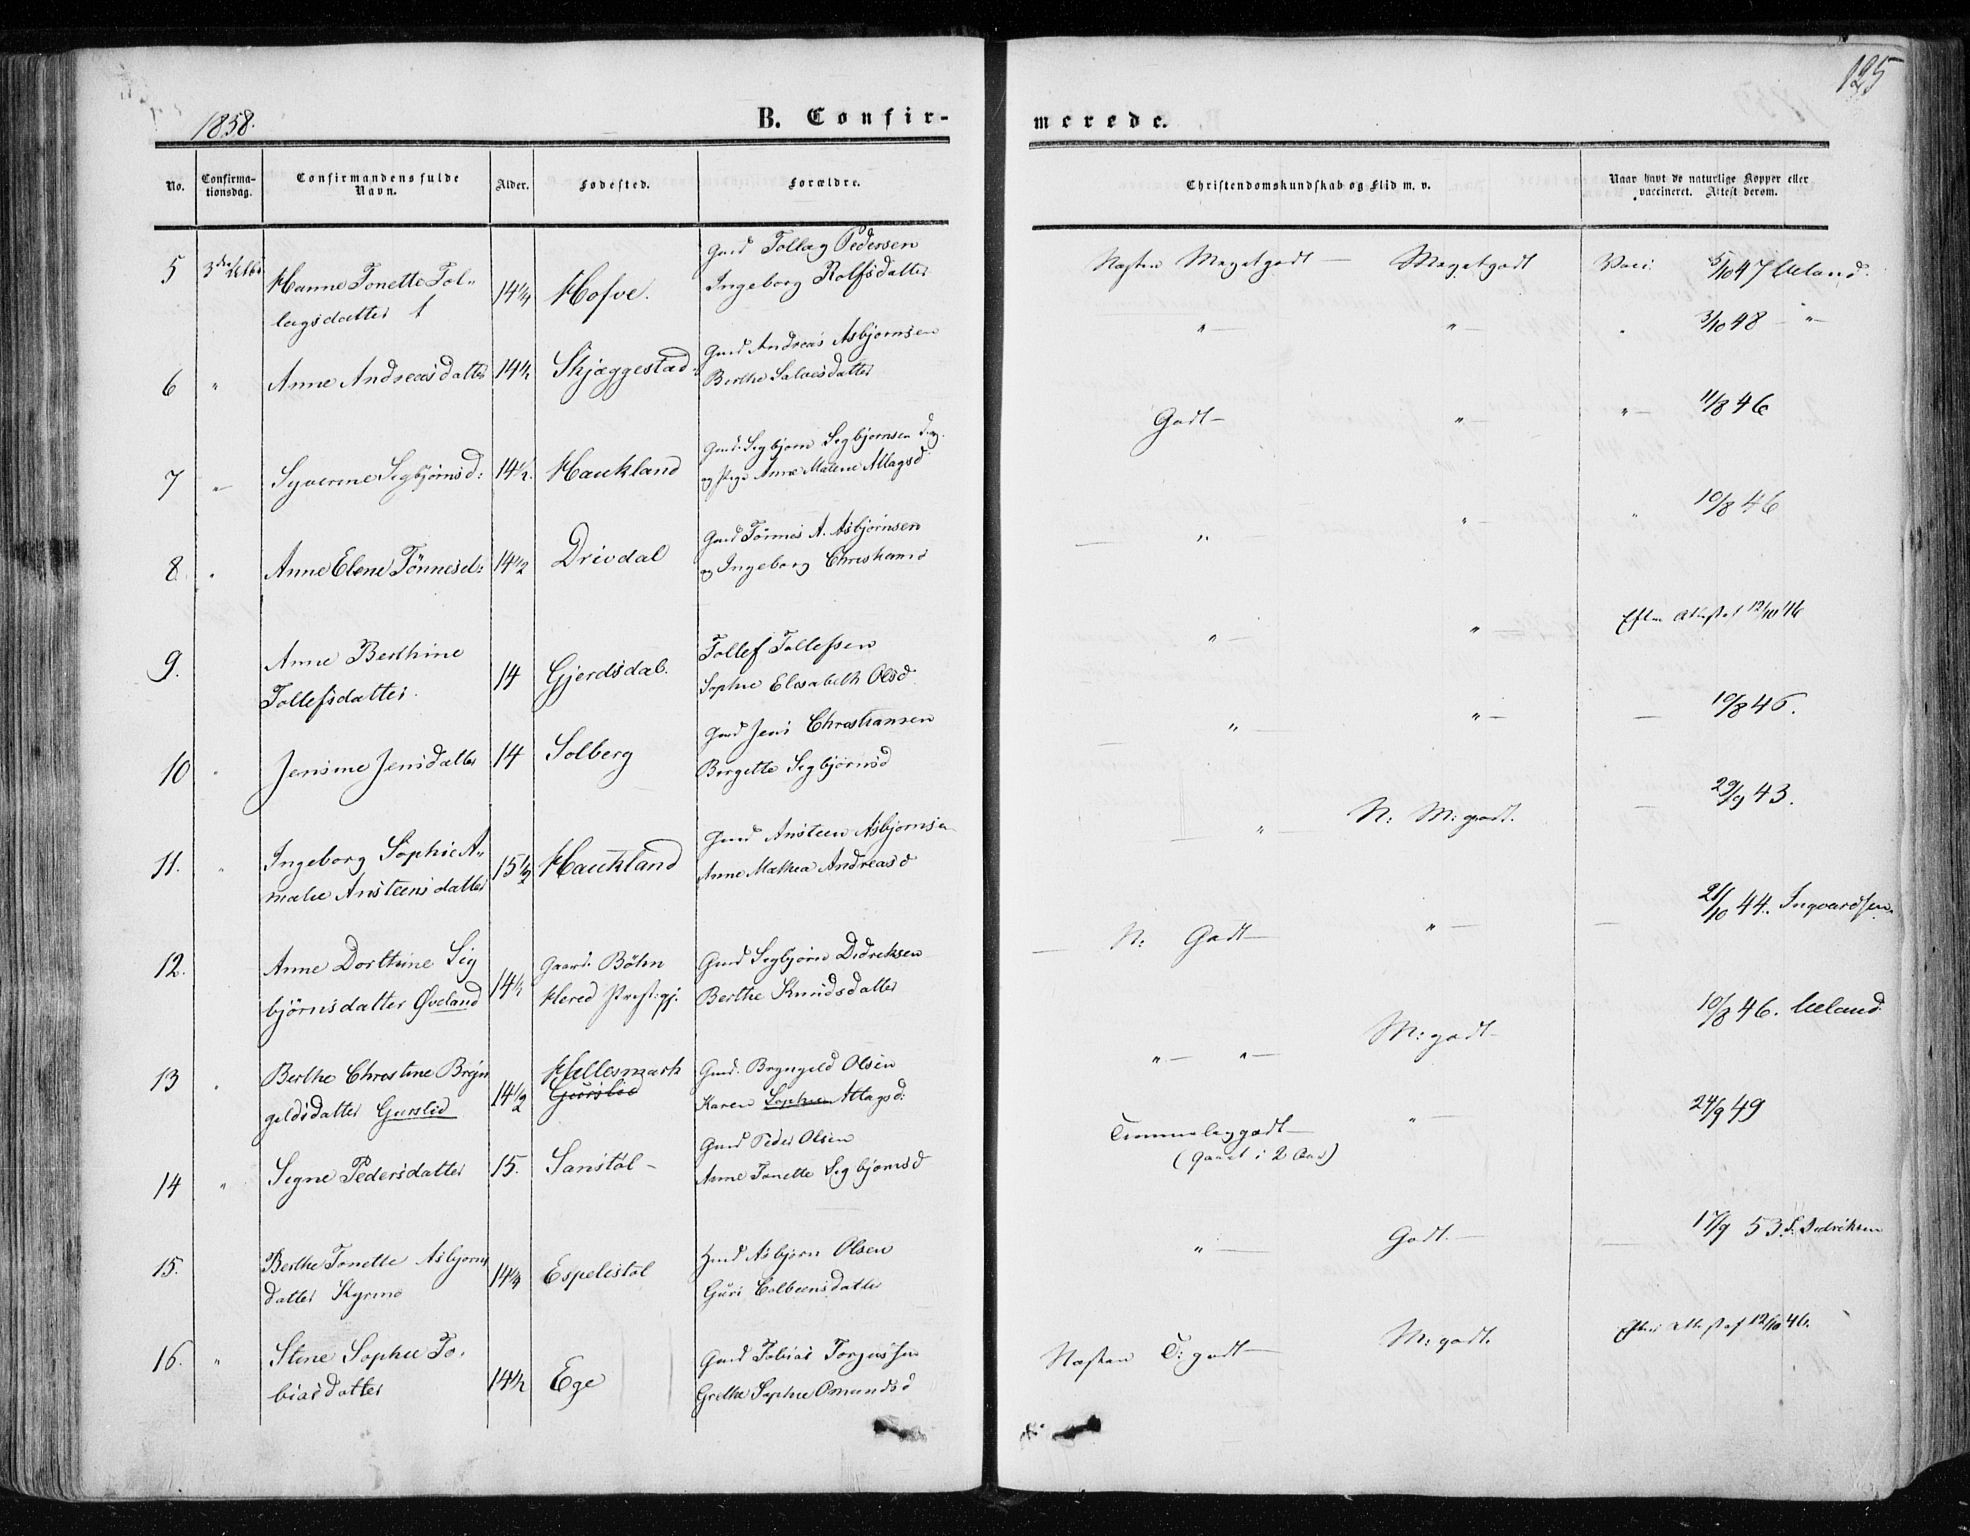 125
1858.
B. Confir-
merede.
No.
Confirma-
tionsdag.
Confirmandens fulde
Navn.
Alder.
Fødested.
Forældre.
Christendomskundskab og Flid m. v.
Naar havt de naturlige Kopper eller
vaccineret. Attest derom.
5 Hanne Tonette Tol-
lagsdatter 14 1/4 Hofve.
Gmd Tollag Pedersen
Ingeborg Rolfsdatter
Næsten Megetgodt — Megetgodt Vacc. 5/10 47 Ueland.
6 " Anne Andreasdatter 14 1/2 Skjæggestad
Gmd Andreas Asbjørnsen
Berthe Salvesdatter
" — " — 3/10 48 — " —
7 " Syverine Segbjørnsd: 14 1/2 Haukland
Gmd. Segbjørn Segbjørnsen
og Pige Anne Malene Atlagsd
Godt — " — " — 11/8 46
8 " Anne Elene Tønnesd: 14 1/2 Drivdal
Gmd Tønnes A. Asbjørnsen
og Ingeborg
" — " — " 10/8 46
9. Anne Berthine
Tollefsdatter. 14 Gjerdsdal.
Tollef Tollefsen
Sophie Elisabeth Olsd
" — " — Efter Attest af 12/10 46
10 " Jensine Jensdatter 14 Solberg
Gmd Jens Christiansen
Bergette Segbjørnsd
" — " — — 10/8 46.
11. " Ingeborg Sophie A-
malie Ansteensdatter 15 1/2 Haukland
Gmd Ansteen Asbjørnsen
Anne Mathea Andreasd
" — N: M: godt. — 29/9 43.
12. Anne Dorthine Seg
bjørnsdatter Øveland 14 1/2
Gaard. Bøhn
Hered Præst:gj.
Gmd Segbjørn Didreksen
Berthe Knudsdatter
— N: Godt — " — — 21/10 44. Ingvardsen.
13 " Berthe Christine Bryn
geldsdatter Gurslid 14 1/2
Hellesmark
Gurslid
Gmd. Bryngeld Olsen
Karen Sophie Atlagsd:
" — " — M: godt — 10/8 46. Ueland
14 " Segne Pedersdatter 15. Sanstøl —
Gmd Peder Olsen
Anne Tonette Segbjørnsd
Temmeleg godt — " — 24/9 49
(Gaaet i 2 Aar)
15. Berthe Tonette Asbjørns
datter 14 1/4 Espelistøl
Gmd Asbjørn Olsen
Guri Colbeensdatter
" — Godt. — — 17/9 53. S. Dedriksen
16. " Stine Sophie To-
biasdatter 14 1/2 Ege
Gmd Tobias Torjussen
Grethe Sophie Omundsd
Næsten T: godt — M: godt. Efter Attest af 12/10 46.